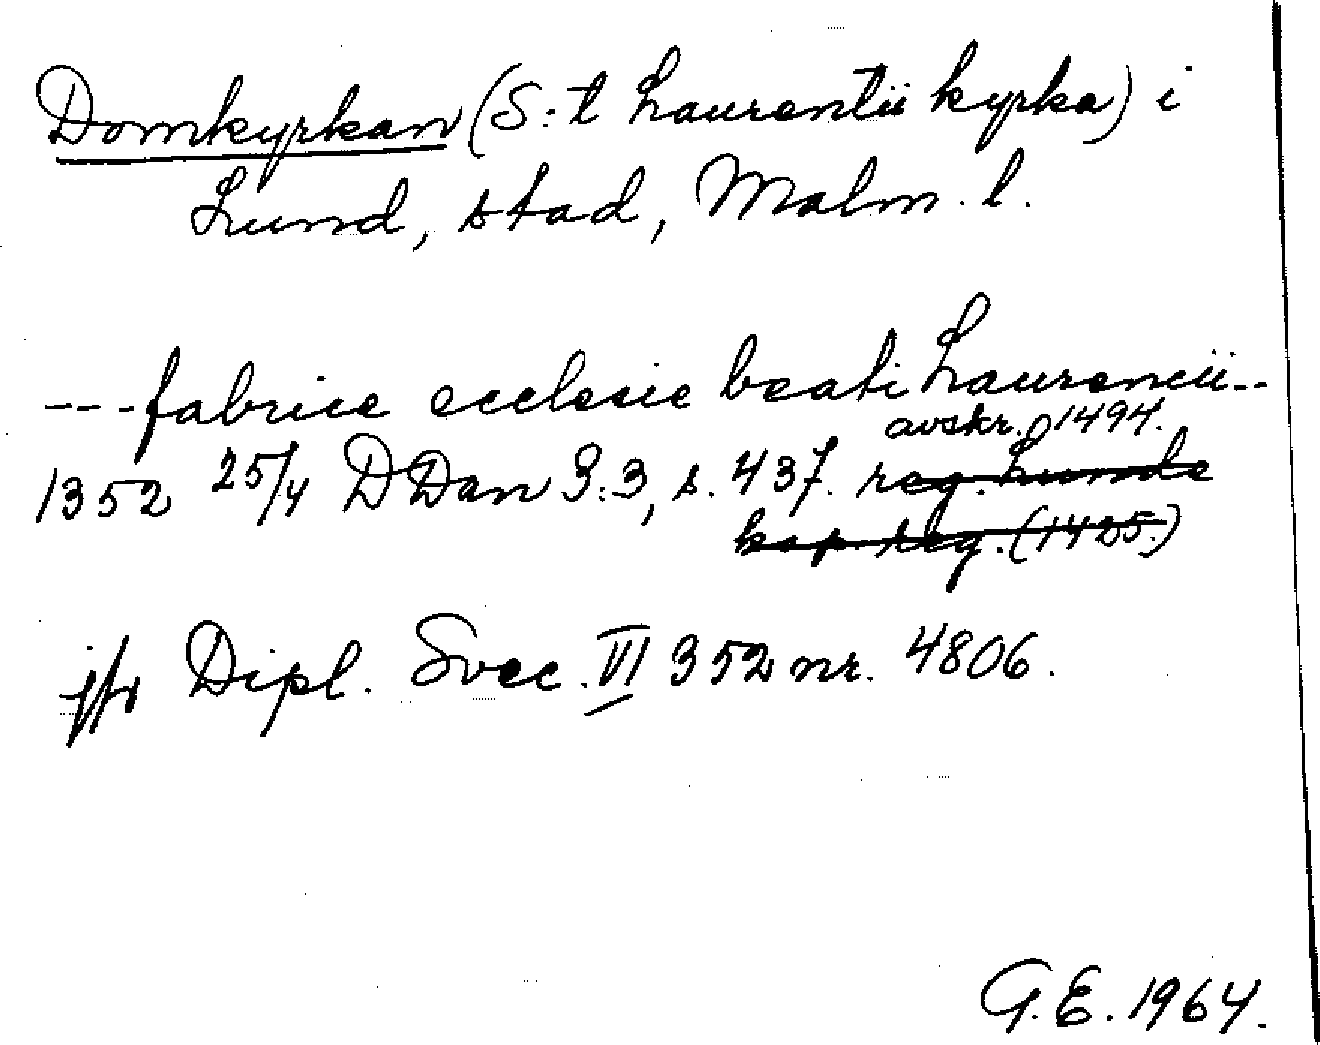 Domkyrkan (S:t Laurentii kyrka) i
Lund, stad, Malm. l.
---fabrice ecclesie beati Laurencii--
avskr. 1494.
1352 25/4 DDan 3:3, s. 437. reg. Lunde
kop. reg. (1425.)
jfr Dipl. Svec. VI 352 nr. 4806.
G.E. 1964.